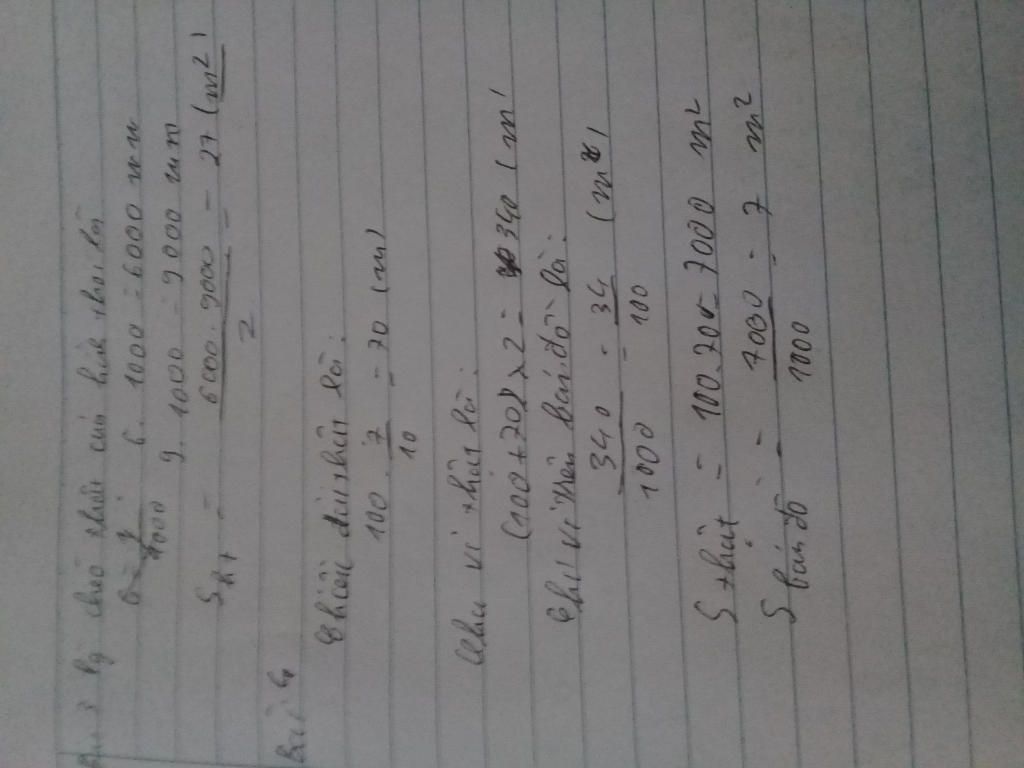 Bài 3 Độ chéo thực của hình thoi là
6. 1000 = 6000 mm
9. 1000 = 9000 mm
S ht = 6000. 9000 / 2 = 27 (m²)
Bài 4
Chiều dài thực là:
100 . 7/10 = 70 (m)
Chu vi thực là:
(100 + 70) x 2 = 340 (m)
Chu vi trên bản đồ là:
340/1000 = 34/100 (m)
S thật = 100. 70 = 7000 m²
S bản đồ = 7000/1000 = 7 m²